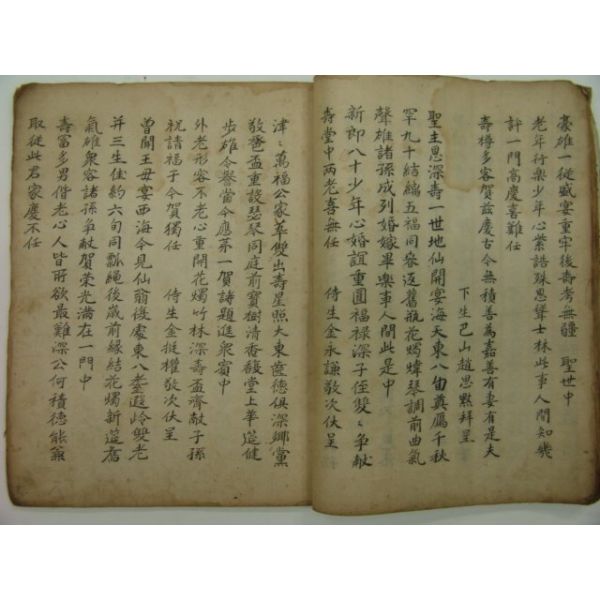 豪雄一徒盛宴重牢後壽考無疆 聖世中
老年行樂少年心紫誥殊恩聳士林此事人間知幾
許一門高慶喜難任
下生己山趙思默拜呈
壽樽多客賀玆慶古今無積善爲嘉善有妻有是夫
聖主恩深壽一世地仙開宴海天東八旬奠鴈千秋
罕九十結縭五福同參返舊瓶花燭煒琴調前曲氣
聲雄諸孫成列婚嫁畢樂事人間此是中
新郎八十少年心婚誼重圓福祿深子侄雙〻爭獻
壽堂中兩老喜無任 侍生金永謙敬次伏呈
津〻萬福公家萃雙出壽星照大東齒德俱深鄉黨
敬巹盃重設瑟琴同庭前寶樹清香馥堂上華筵健
步雄令譽當今應第一賀詩題進衆賓中
外老形容不老心重開花燭竹林深壽盃齊獻子孫
就請福子今賀獨任 侍生金挺權敬次伏呈
曾聞王母宴西海今見仙翁後處東八耋遐岭雙老
幷三生佳約六旬同瓢繩後歲前緣結花燭新筵舊
氣雄衆客諸孫爭献賀榮光滿在一門中
壽富多男偕老心人皆所欲最難深公何積德能兼
取從此君家慶不任